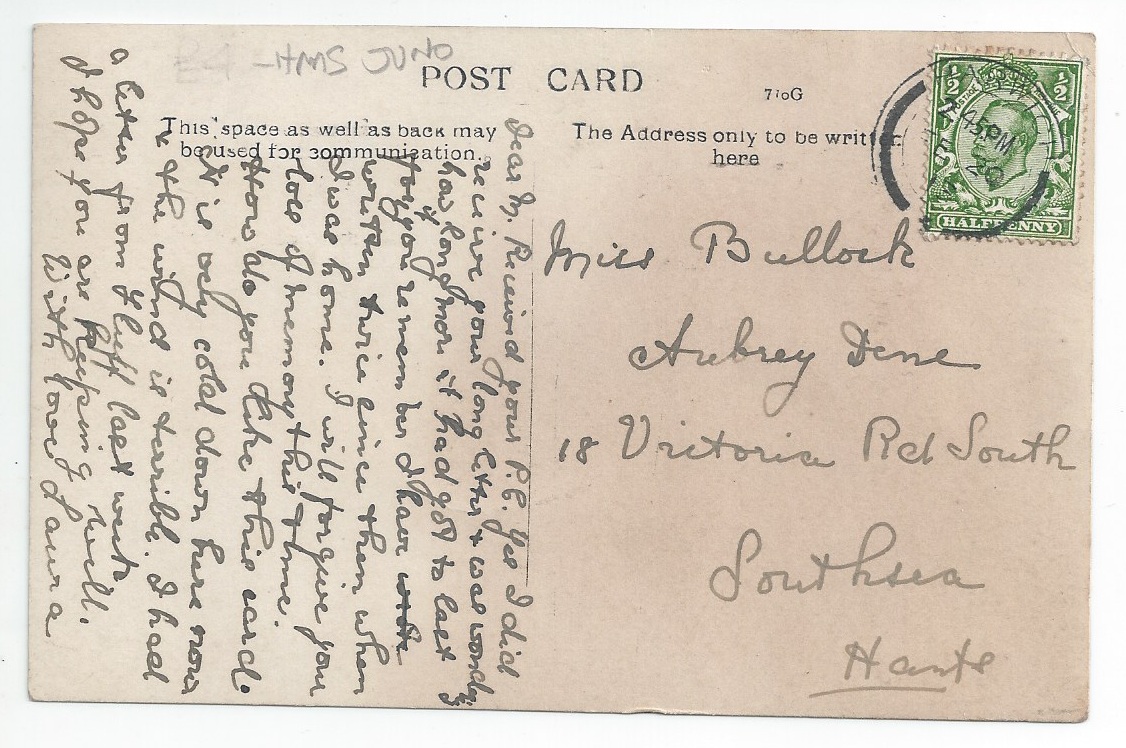 -HMS JUNO
POST CARD
710G
This space as well as back may
be used for communication.
The Address only to be written
here
½ ½
HALFPENNY
45PM
Miss Bullock
Aubrey Dene
18 Victoria Rd South
Southsea
Hants
Dear M. Received your P.C. Yes I did
receive your long letter & was wondg
how long more it had got to last
for if you remember I have
written twice since then when
I was home. I will forgive your
loss of memory this time.
How do you like this card.
It is only cold down here now
& the wind is terrible. I had
a letter from Fluff last week
I hope you are keeping well.
With love Laura